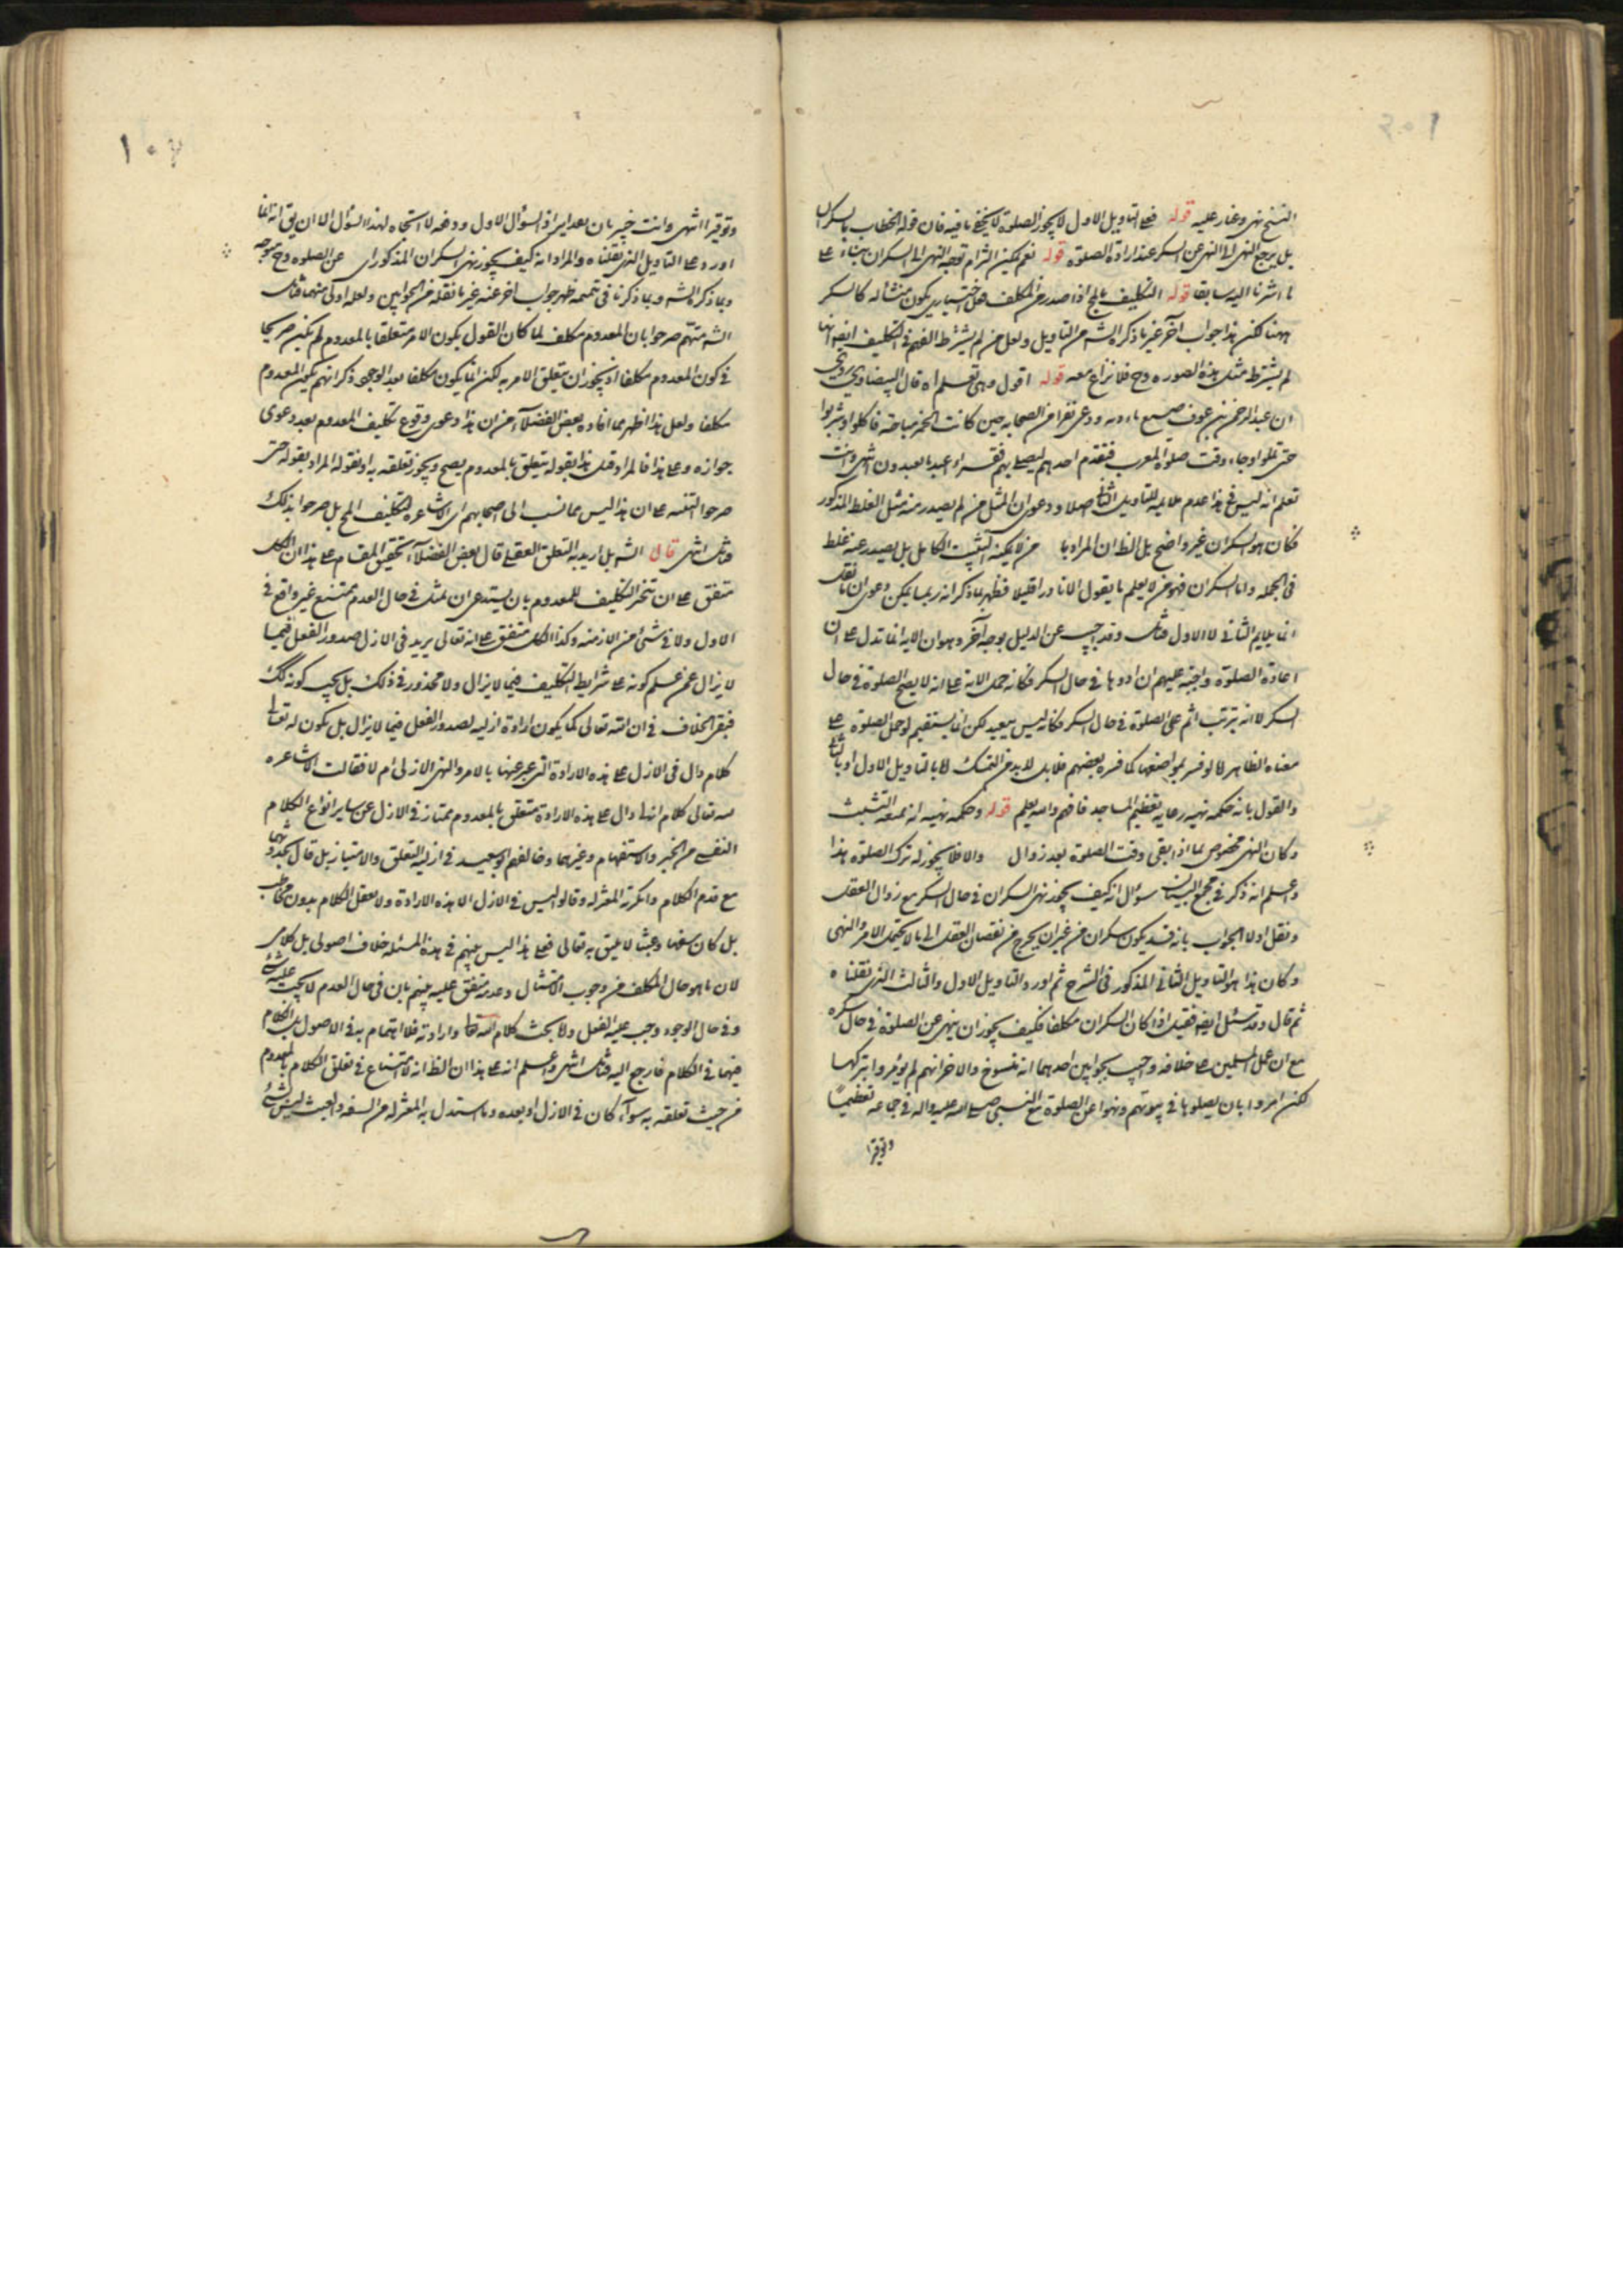 قوله فعلى التاويل الاول لا يجوز الصلوة لا يخفى ما فيه فان قوله الخطاب
بل يرجع النهى الى النهى عن السكر عند ارادة الصلوة قوله نعم يمكن التزام توجه النهى الى السكران بناء على
ما اشرنا اليه سابقا قوله التكليف بالمح اذا صدر من المكلف فعل اختيارى يكون منشأ له كالسكر
ههنا لكن هذا جواب آخر غير ما ذكره الشه من التاويل ولعل من لم يشترط الفهم فى التكليف ايضا
لم يشترط مثل هذه الصوره وح فلا نزاع معه قوله اقول وهى تعلم اه قال البيضاوى روى
ان عبد الرحمن بن عوف صنع مادبه ودعى نفرا من الصحابه حين كانت الخمر مباحة فاكلوا وشربوا
حتى ثملوا وجاء وقت صلوة المغرب فتقدم احدهم ليصلى بهم فقراء اعبد ما تعبدون انتهى وانت
تعلم انه ليس فى هذا عدم ملايمه للتاويل الثانى اصلا ودعوى ان الثمل من لم يصدر منه مثل الغلط المذكور
فكان هو السكران غير واضح بل الظ ان المراد من لا يمكنه التثبت الكامل بل يصدر عنه غلط
فى الجمله واما السكران فهو من لا يعلم ما يقول الا نادرا قليلا فظهر بما ذكر انه ربما يمكن دعوى ان ما نقله
انما يلايم الثانى لا الاول فتامل وقد اجيب عن الدليل بوجه آخر وهو ان الايه انما تدل على ان
اعادة الصلوة واجبة عليهم ان ادوها فى حال السكر فكانه حمل الآية على انه لا يصح الصلوة فى حال
السكر لا انه يترتب اثم على الصلوة فى حال السكر فكانه ليس ببعيد لكن انما يستقيم لو حمل الصلوة على
معناه الظاهر اما لو فسر بمواضعها كما فسره بعضهم فلا بل لا بد من التمسك اما بالتاويل الاول او بالثانى
والقول بانه حكمه نهيه رعاية تعظيم المساجد فافهم والله يعلم قوله وحكمه نهيه انه يمنعه التثبت
وكان النهى مخصوص بما اذا بقى وقت الصلوة بعد زوال والا فلا يجوز له ترك الصلوة هذا
واعلم انه ذكر فى مجمع البيان سؤال انه كيف يجوز نهى السكران فى حال السكر مع زوال العقل
ونقل اولا الجواب بانه قد يكون سكران من غير ان يخرج من نقصان العقل الى ما لا يحتمل الامر والنهى
وكان هذا هو التاويل الثانى المذكور فى الشرح ثم اورد التاويل الاول والثالث الذى نقلناه
ثم قال وقد سئل ايضا فقيل اذا كان السكران مكلفا فكيف يجوز ان ينهى عن الصلوة فى حال سكره
مع ان عمل المسلمين على خلافه واجيب بجوابين احدهما انه منسوخ والاخر انهم لم يؤمروا بتركها
لكن امروا بان يصلوها فى بيوتهم ونهوا عن الصلوة مع النبى صلى الله عليه واله فى جماعه تعظيما
وتوقيرا
١٠٧
وتوقيرا انتهى وانت خبير بان بعد ايراد السؤال الاول ودفعه لا اتجاه لهذا السؤال الا ان يق انه انما
اورد على التاويل الذى نقلناه والمراد انه كيف يجوز نهى السكران المذكور عن الصلوه وح
وبما ذكره الشه وبما ذكرنا فى تتميمه ظهر جواب اخر عنه غير ما نقله من الجوابين ولعله اولى منهما فتامل
الشه صرحوا بان المعدوم مكلف لما كان القول بكون الامر متعلقا بالمعدوم لم يكن صريحا
فى كون المعدوم مكلفا اذ يجوز ان يتعلق الامر به لكن انما يكون مكلفا بعد الوجود ذكر انهم بكون المعدوم
مكلفا ولعل هذا اظهر مما افاده بعض الفضلاء من ان هذا دعوى وقوع تكليف المعدوم بعد دعوى
جوازه وعلى هذا فالمراد بقوله يتعلق بالمعدوم يصح ويجوز تعلقه به او نقول المراد بقوله حتى
صرحوا التنبيه على ان هذا ليس مما نسب الى اصحابهم اى الاشاعره التكليف المح بل صرحوا بذلك
فتامل انتهى قال الشه بل اريد به التعلق العقلى قال بعض الفضلاء تحقيق المقام على هذا ان الكل
متفق على ان تنجز التكليف للمعدوم بان يستدعى ان يمتثل فى حال العدم ممتنع غير واقع فى
الاول ولا فى شئ من الازمنه وكذا الكل متفق على انه تعالى يريد فى الازل صدور الفعل فيما
لا يزال عمن علم كونه على شرايط التكليف فيما لا يزال ولا محذور فى ذلك بل يجب كونه كذلك
فبقى الخلاف فى ان الله تعالى كما يكون ارادة ازليه لصدور الفعل فيما لا يزال بل يكون له تعالى
كلام دال فى الازل على هذه الارادة التى عبر عنها بالامر والنهى الازلى ام لا فقالت الاشاعره
لله تعالى كلام ازلى دال على هذه الارادة متعلق بالمعدوم ممتاز فى الازل عن ساير انواع الكلام
النفسى من الخبر والاستفهام وغيرهما وخالفهم ابن سعيد فى ازلية التعلق والامتياز بل قال بحدوثهما
مع قدم الكلام وانكرته المعتزله وقالوا ليس فى الازل الا هذه الارادة ولا يعقل الكلام بدون مخاطب
بل كان سفها وعبثا لا يليق به تعالى فعلى هذا ليس بينهم فى هذه المسئله خلاف اصولى بل كلامى
لان ما هو حال المكلف من وجوب الامتثال وعدمه متفق عليه بينهم بان فى حال العدم لا يجب عليه شئ
وفى حال الوجود وجب عليه الفعل ولا بحث كلام الله تعالى وارادته فلا اهتمام به فى الاصول بل الكلام
فيهما فى الكلام فارجع اليه فتامل انتهى واعلم انه على هذا ان الظ انه لا امتناع فى تعلق الكلام بالمعدوم
من حيث تعلقه به سواء كان فى الازل او بعده وما استدل به المعتزله من السفه والعبث ليس بشئ